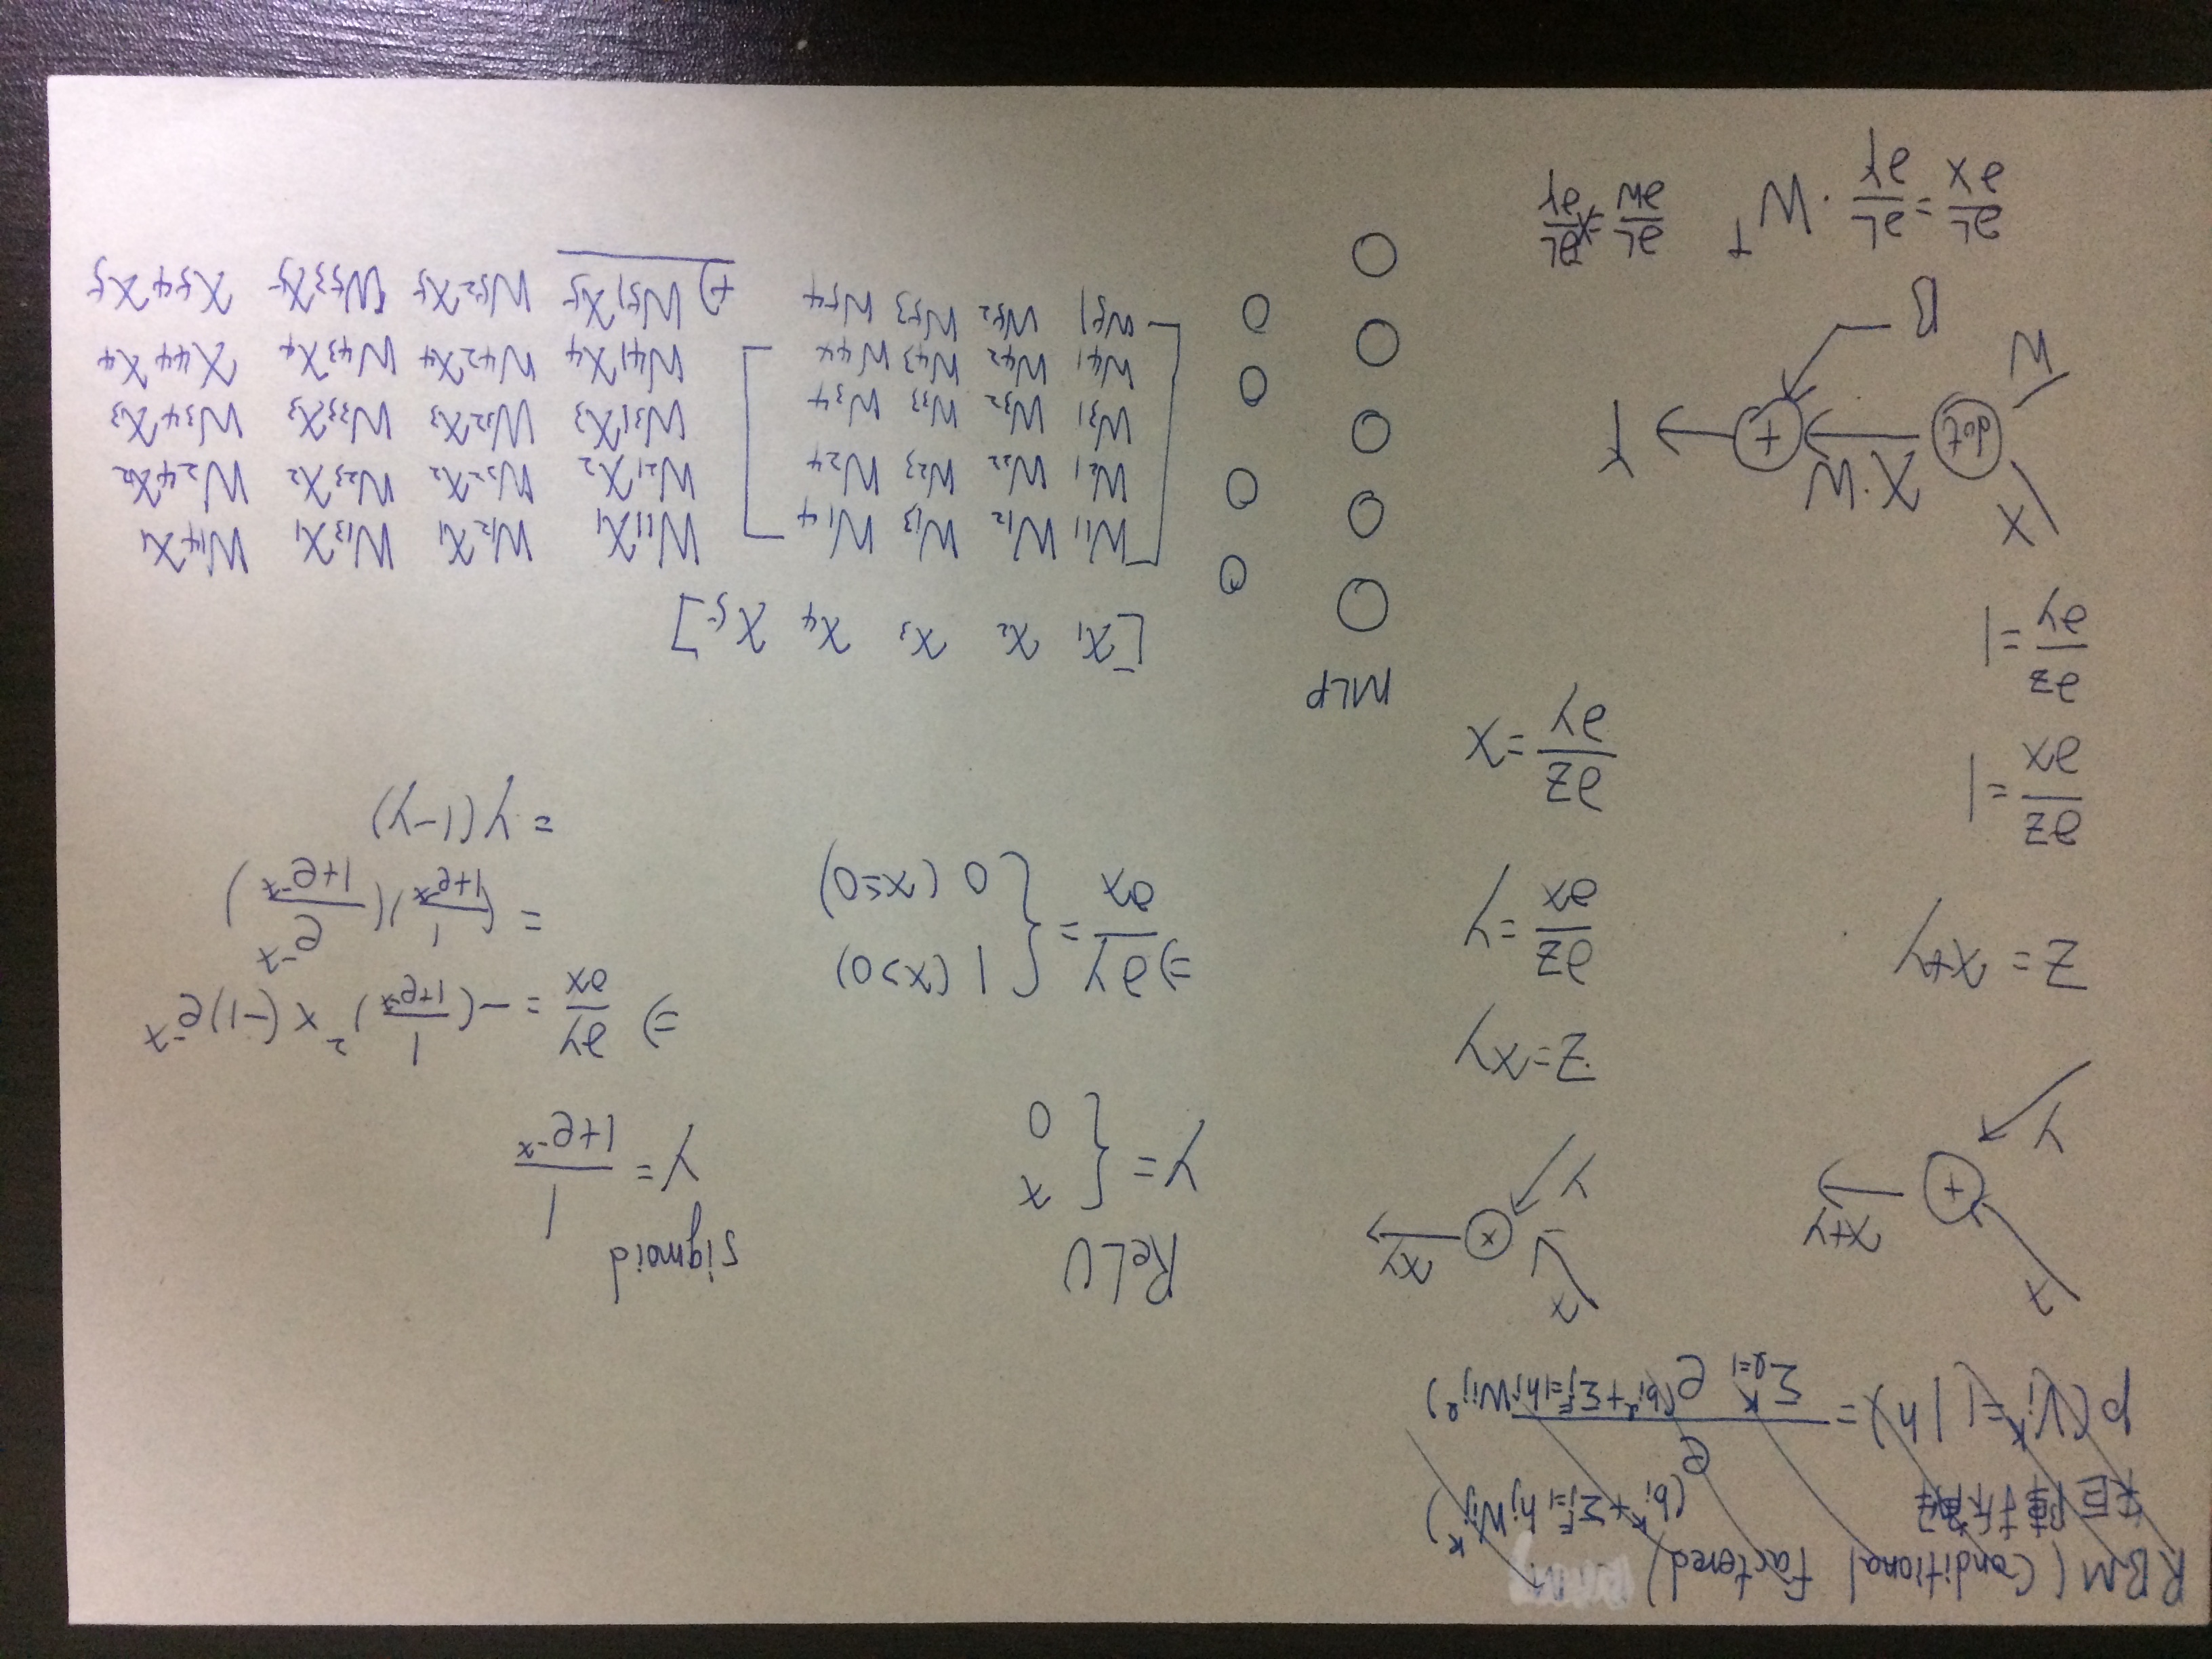 RBM (Conditional factored)
矩陣拆解
p(V_i^k=1|h) = e^(b_i^k+Σ_{j=1}^F h_j W_ij^k) / Σ_{l=1}^K e^(b_i^l+Σ_{j=1}^F h_j W_ij^l)
x
y
+
x+y
Z = x+y
∂z/∂x = 1
∂z/∂y = 1
x
y
×
xy
Z=xy
∂z/∂x = y
∂z/∂y = x
ReLU
y = { x
0
⇒ ∂y/∂x = { 1 (x>0)
0 (x≤0)
sigmoid
y = 1/(1+e^-x)
⇒ ∂y/∂x = -(1/(1+e^-x))^2 × (-1)e^-x
= (1/(1+e^-x))(e^-x/(1+e^-x))
= y(1-y)
X
W
dot
X·W
+
Y
B
∂L/∂X = ∂L/∂Y · W^T
∂L/∂W = X ∂L/∂Y
MLP
[x1 x2 x3 x4 x5]
W11 W12 W13 W14
W21 W22 W23 W24
W31 W32 W33 W34
W41 W42 W43 W44
W51 W52 W53 W54
W11X1 W12X1 W13X1 W14X1
W21X2 W22X2 W23X2 W24X2
W31X3 W32X3 W33X3 W34X3
W41X4 W42X4 W43X4 X44X4
+) W51X5 W52X5 W53X5 X54X5